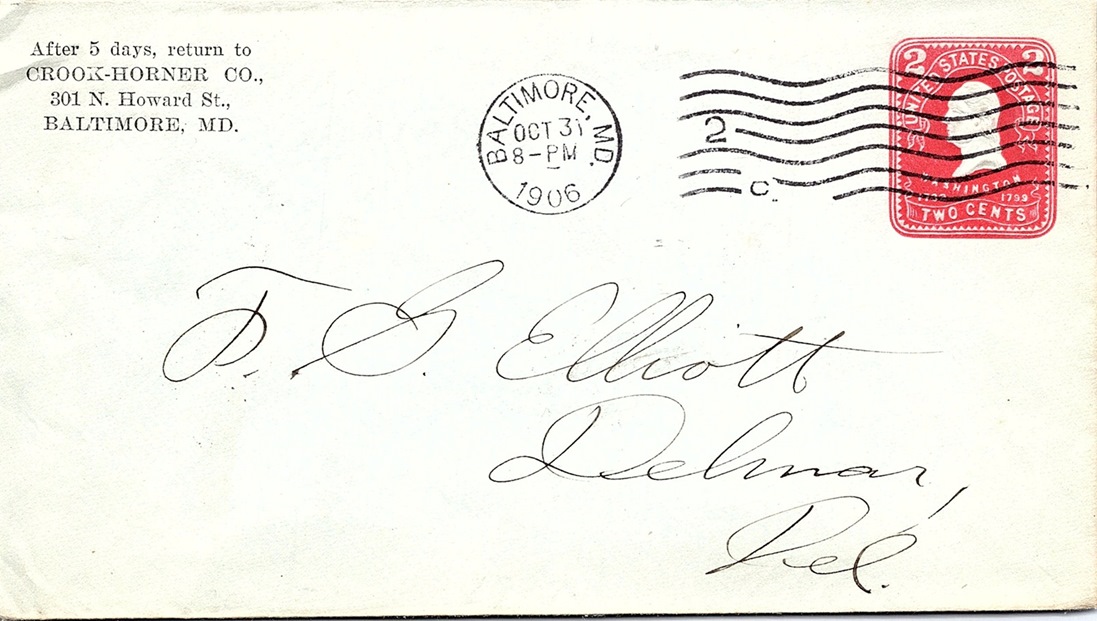 After 5 days, return to
CROOK-HORNER CO.,
301 N. Howard St.,
BALTIMORE, MD.
BALTIMORE, MD.
OCT 31
8-PM
1906
2
C
2 2
UNITED STATES POSTAGE
WASHINGTON
1732 1799
TWO CENTS
F. G. Elliott
Delmar,
Del.